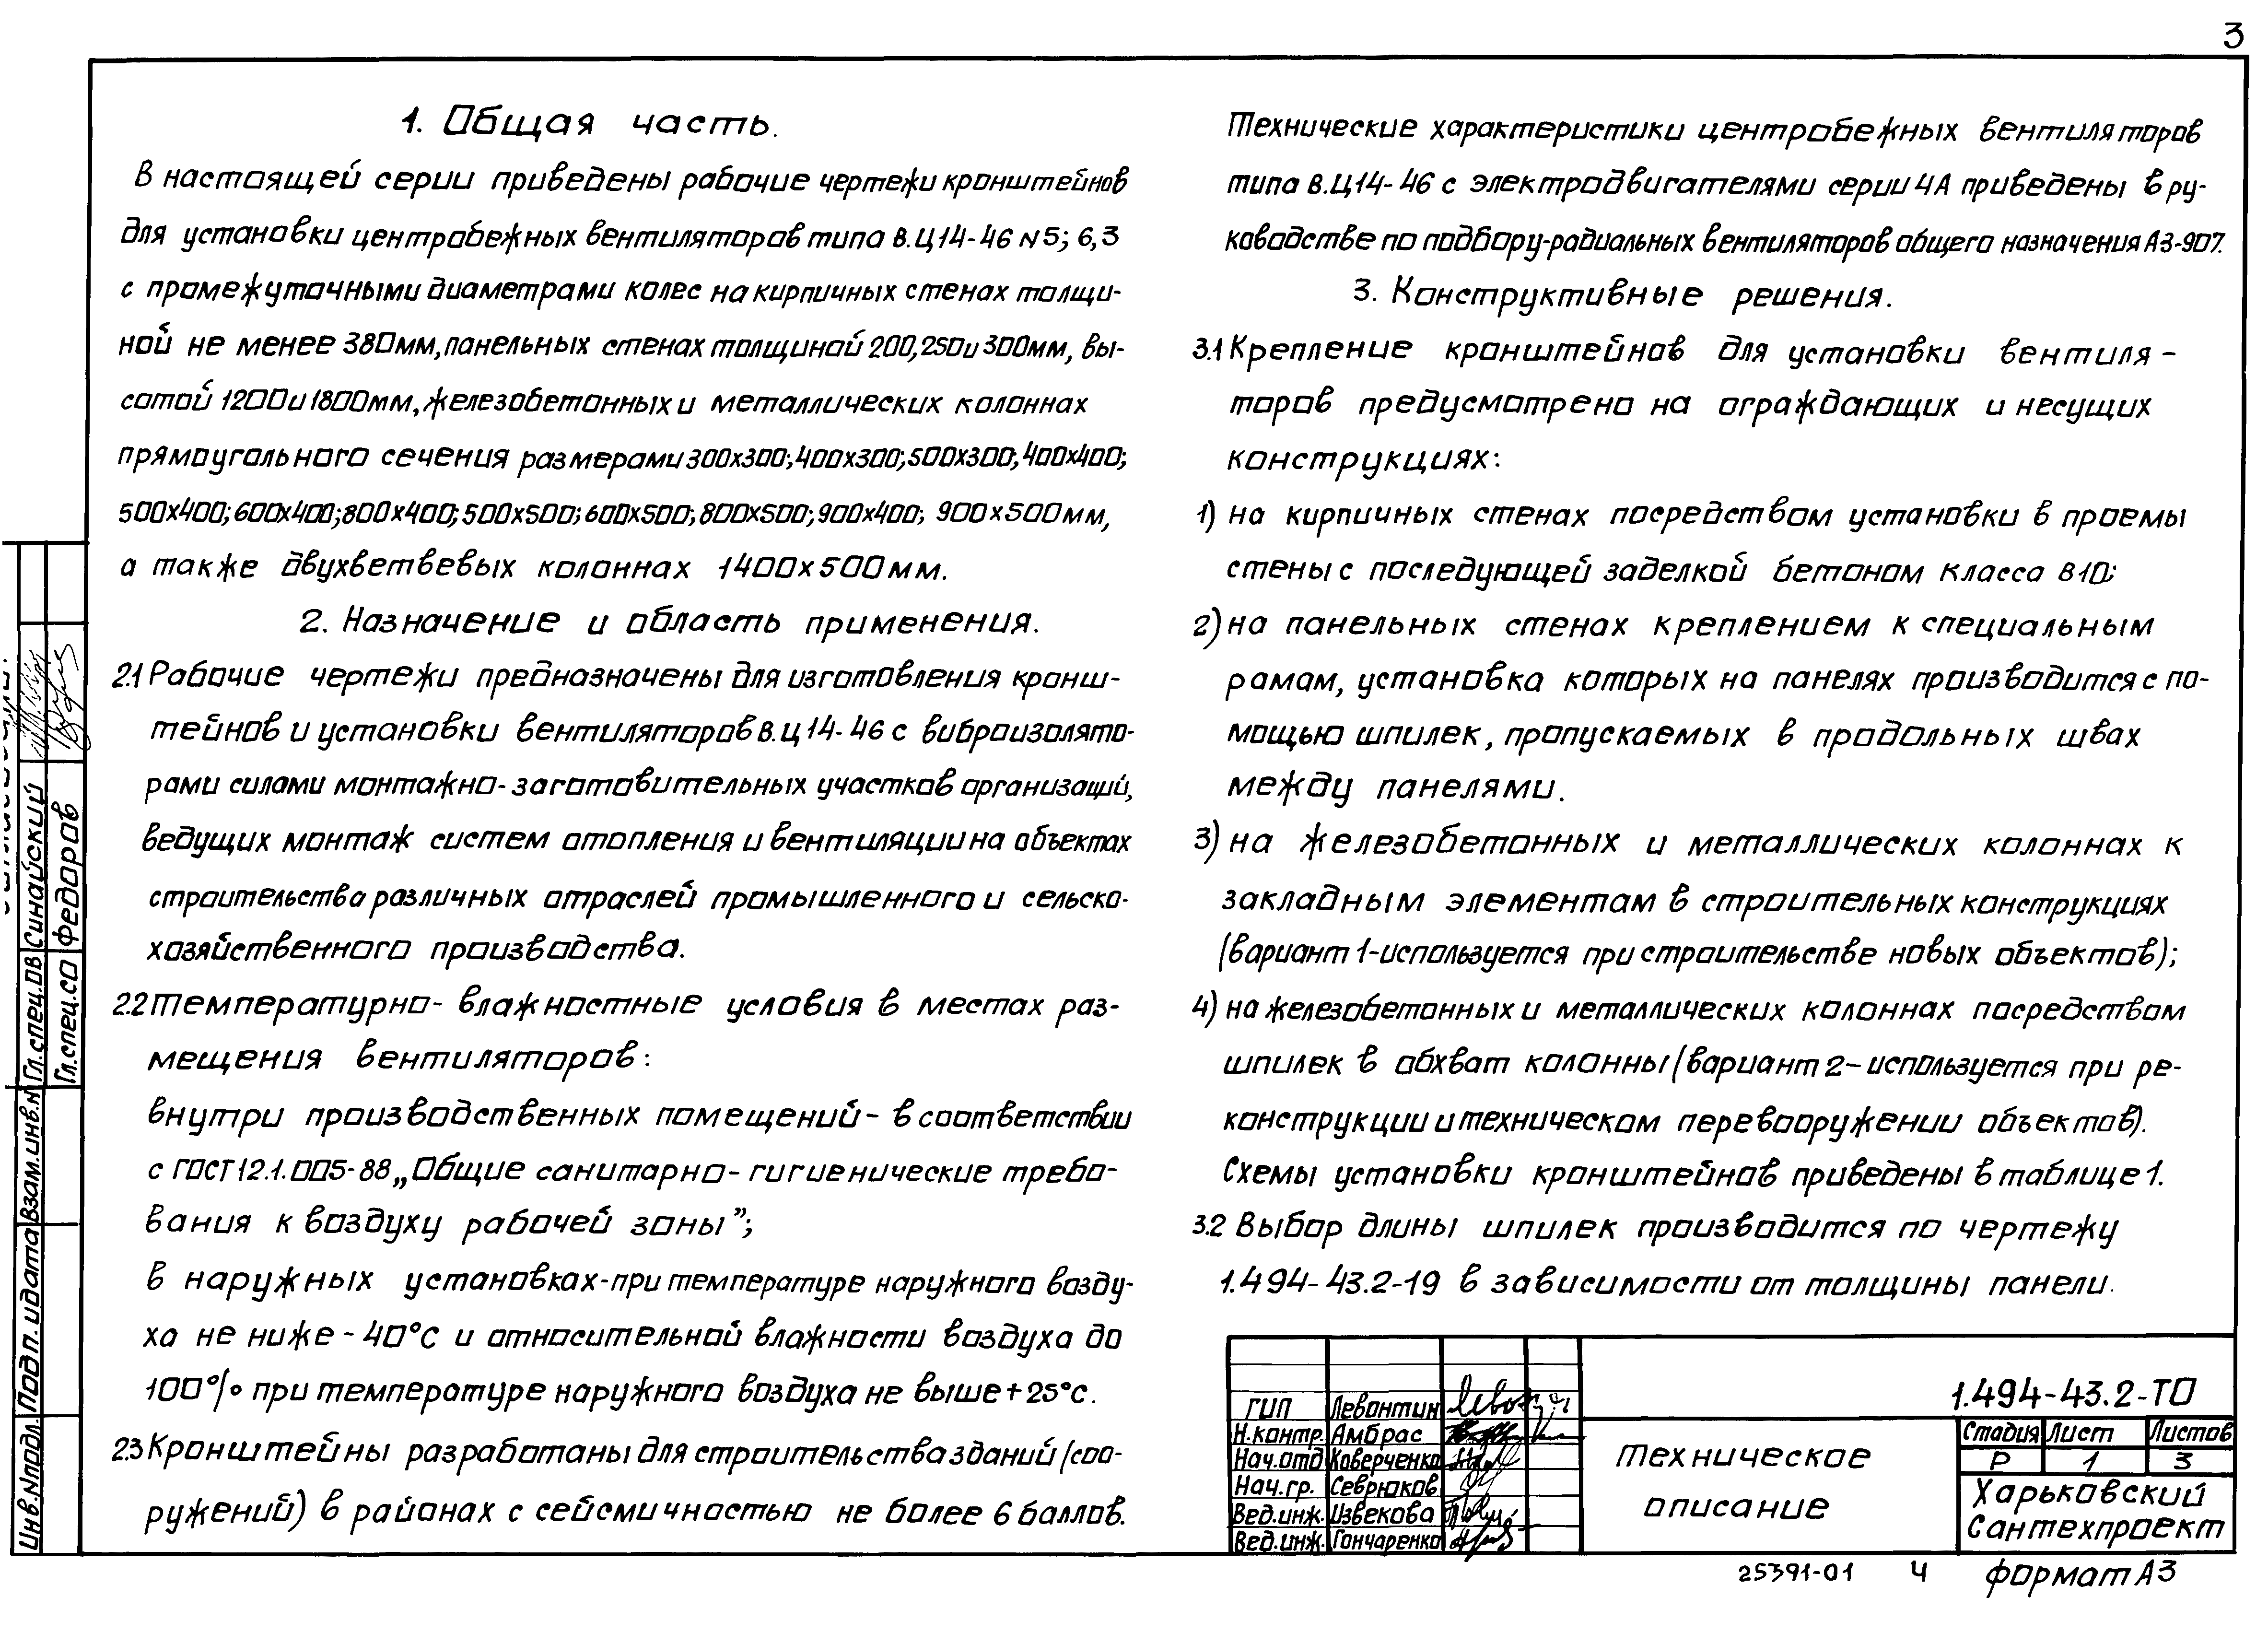 3
1. Общая часть.
В настоящей серии приведены рабочие чертежи кронштейнов
для установки центробежных вентиляторов типа В.Ц14-46 N5; 6,3
с промежуточными диаметрами колес на кирпичных стенах толщи-
ной не менее 380мм, панельных стенах толщиной 200, 250 и 300мм, вы-
сотой 1200 и 1800мм, железобетонных и металлических колоннах
прямоугольного сечения размерами 300х300; 400х300; 500х300; 400х400;
500х400; 600х400; 800х400; 500х500; 600х500; 800х500; 900х400; 900х500мм,
а также двухветвевых колоннах 1400х500мм.
2. Назначение и область применения.
2.1 Рабочие чертежи предназначены для изготовления кронш-
тейнов и установки вентиляторов В.Ц14-46 с виброизолято-
рами силами монтажно-заготовительных участков организаций,
ведущих монтаж систем отопления и вентиляции на объектах
строительства различных отраслей промышленного и сельско-
хозяйственного производства.
2.2 Температурно-влажностные условия в местах раз-
мещения вентиляторов:
внутри производственных помещений - в соответствии
с ГОСТ 12.1.005-88 „Общие санитарно-гигиенические требо-
вания к воздуху рабочей зоны";
в наружных установках - при температуре наружного возду-
ха не ниже -40°С и относительной влажности воздуха до
100% при температуре наружного воздуха не выше +25°С.
2.3 Кронштейны разработаны для строительства зданий (соо-
ружений) в районах с сейсмичностью не более 6 баллов.
Технические характеристики центробежных вентиляторов
типа В.Ц14-46 с электродвигателями серии 4А приведены в ру-
ководстве по подбору-радиальных вентиляторов общего назначения АЗ-907.
3. Конструктивные решения.
3.1 Крепление кронштейнов для установки вентиля-
торов предусмотрено на ограждающих и несущих
конструкциях:
1) на кирпичных стенах посредством установки в проемы
стены с последующей заделкой бетоном класса В10;
2) на панельных стенах креплением к специальным
рамам, установка которых на панелях производится с по-
мощью шпилек, пропускаемых в продольных швах
между панелями.
3) на железобетонных и металлических колоннах к
закладным элементам в строительных конструкциях
(вариант 1-используется при строительстве новых объектов);
4) на железобетонных и металлических колоннах посредством
шпилек в обхват колонны (вариант 2-используется при ре-
конструкции и техническом перевооружении объектов).
Схемы установки кронштейнов приведены в таблице 1.
3.2 Выбор длины шпилек производится по чертежу
1.494-43.2-19 в зависимости от толщины панели.
Гл.спец.ОВ Синайский
Гл.спец.СО Федоров
Инв.Nподл. Подп. и дата Взам.инв.N
ГИП Левонтин
Н.контр. Амбрас
Нач.отд Коверченко
Нач.гр. Севрюков
Вед.инж. Извекова
Вед.инж. Гончаренко
1.494-43.2-ТО
Техническое
описание
Стадия Лист Листов
Р 1 3
Харьковский
Сантехпроект
25391-01 4 формат А3